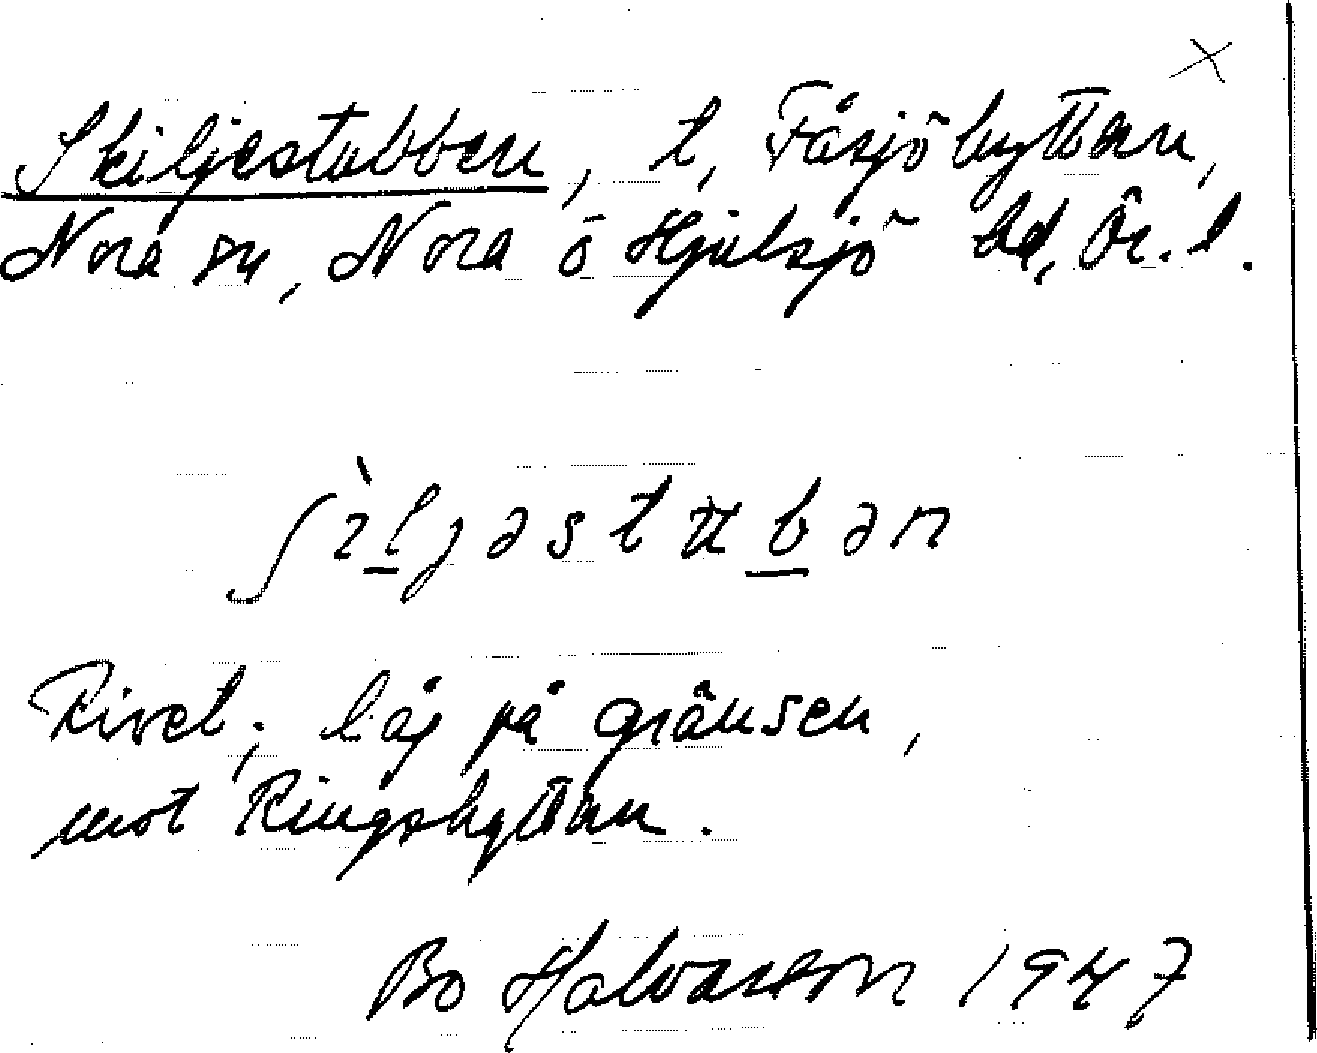 Skiljestubben, t, Fåsjöhyttan,
Nora sn, Nora o Hjulsjö bd, Ör. l.
ʃìljəstubən
Rivet; låg på gränsen,
mot Ringshyttan.
Bo Halvarson 1947